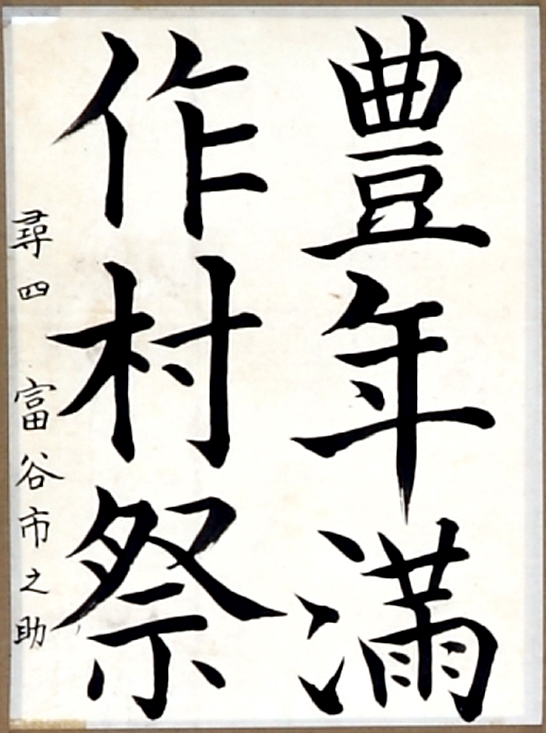 豊年満
作村祭
尋四 富谷市之助